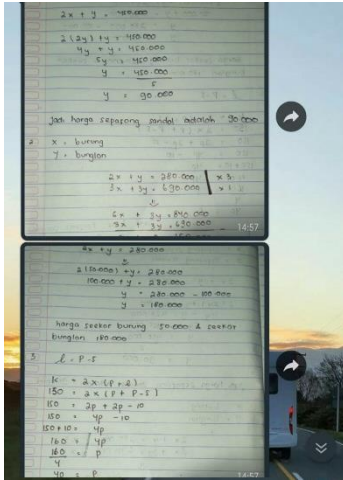 2x + y = 450.000
2(2y) + y = 450.000
4y + y = 450.000
5y = 450.000
y = 450.000
5
y = 90.000
Jadi harga sepasang sandal adalah 90.000
2 x = burung
y = bunglon
2x + y = 280.000 | x 3
3x + 3y = 690.000 | x 1
6x + 3y = 840.000
3x + 3y = 690.000
14:57
2x + y = 280.000
2(50.000) + y = 280.000
100.000 + y = 280.000
y = 280.000 - 100.000
y = 180.000
harga seekor burung 50.000 & seekor
bunglon 180.000
3 l = P - 5
k = 2 x (P + l)
150 = 2 x (P + P - 5)
150 = 2p + 2p - 10
150 = 4p - 10
150 + 10 = 4p
160 = 4p
160 = P
4
40 = P
14:57